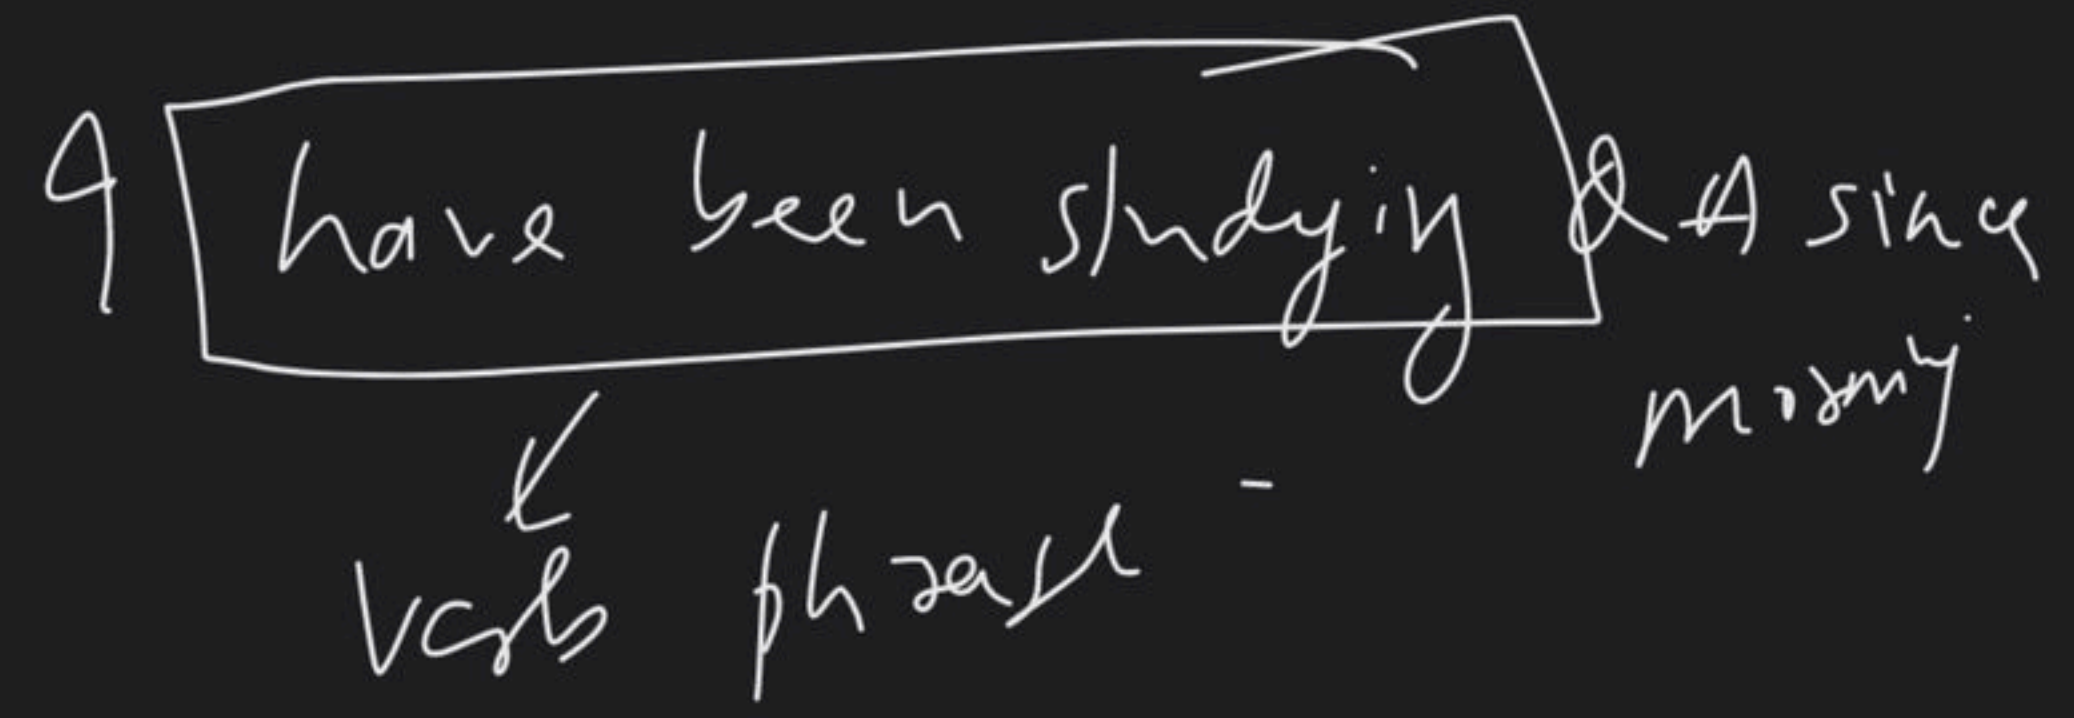 I have been studying Q A since
morning
verb phrase -